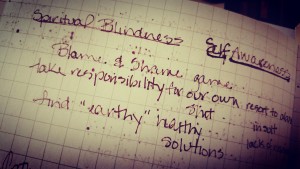 Spiritual Blindness
Self Awareness
Blame & Shame game
take responsibility for our own
resort to
find "earthy" healthy
insult
solutions
lack of